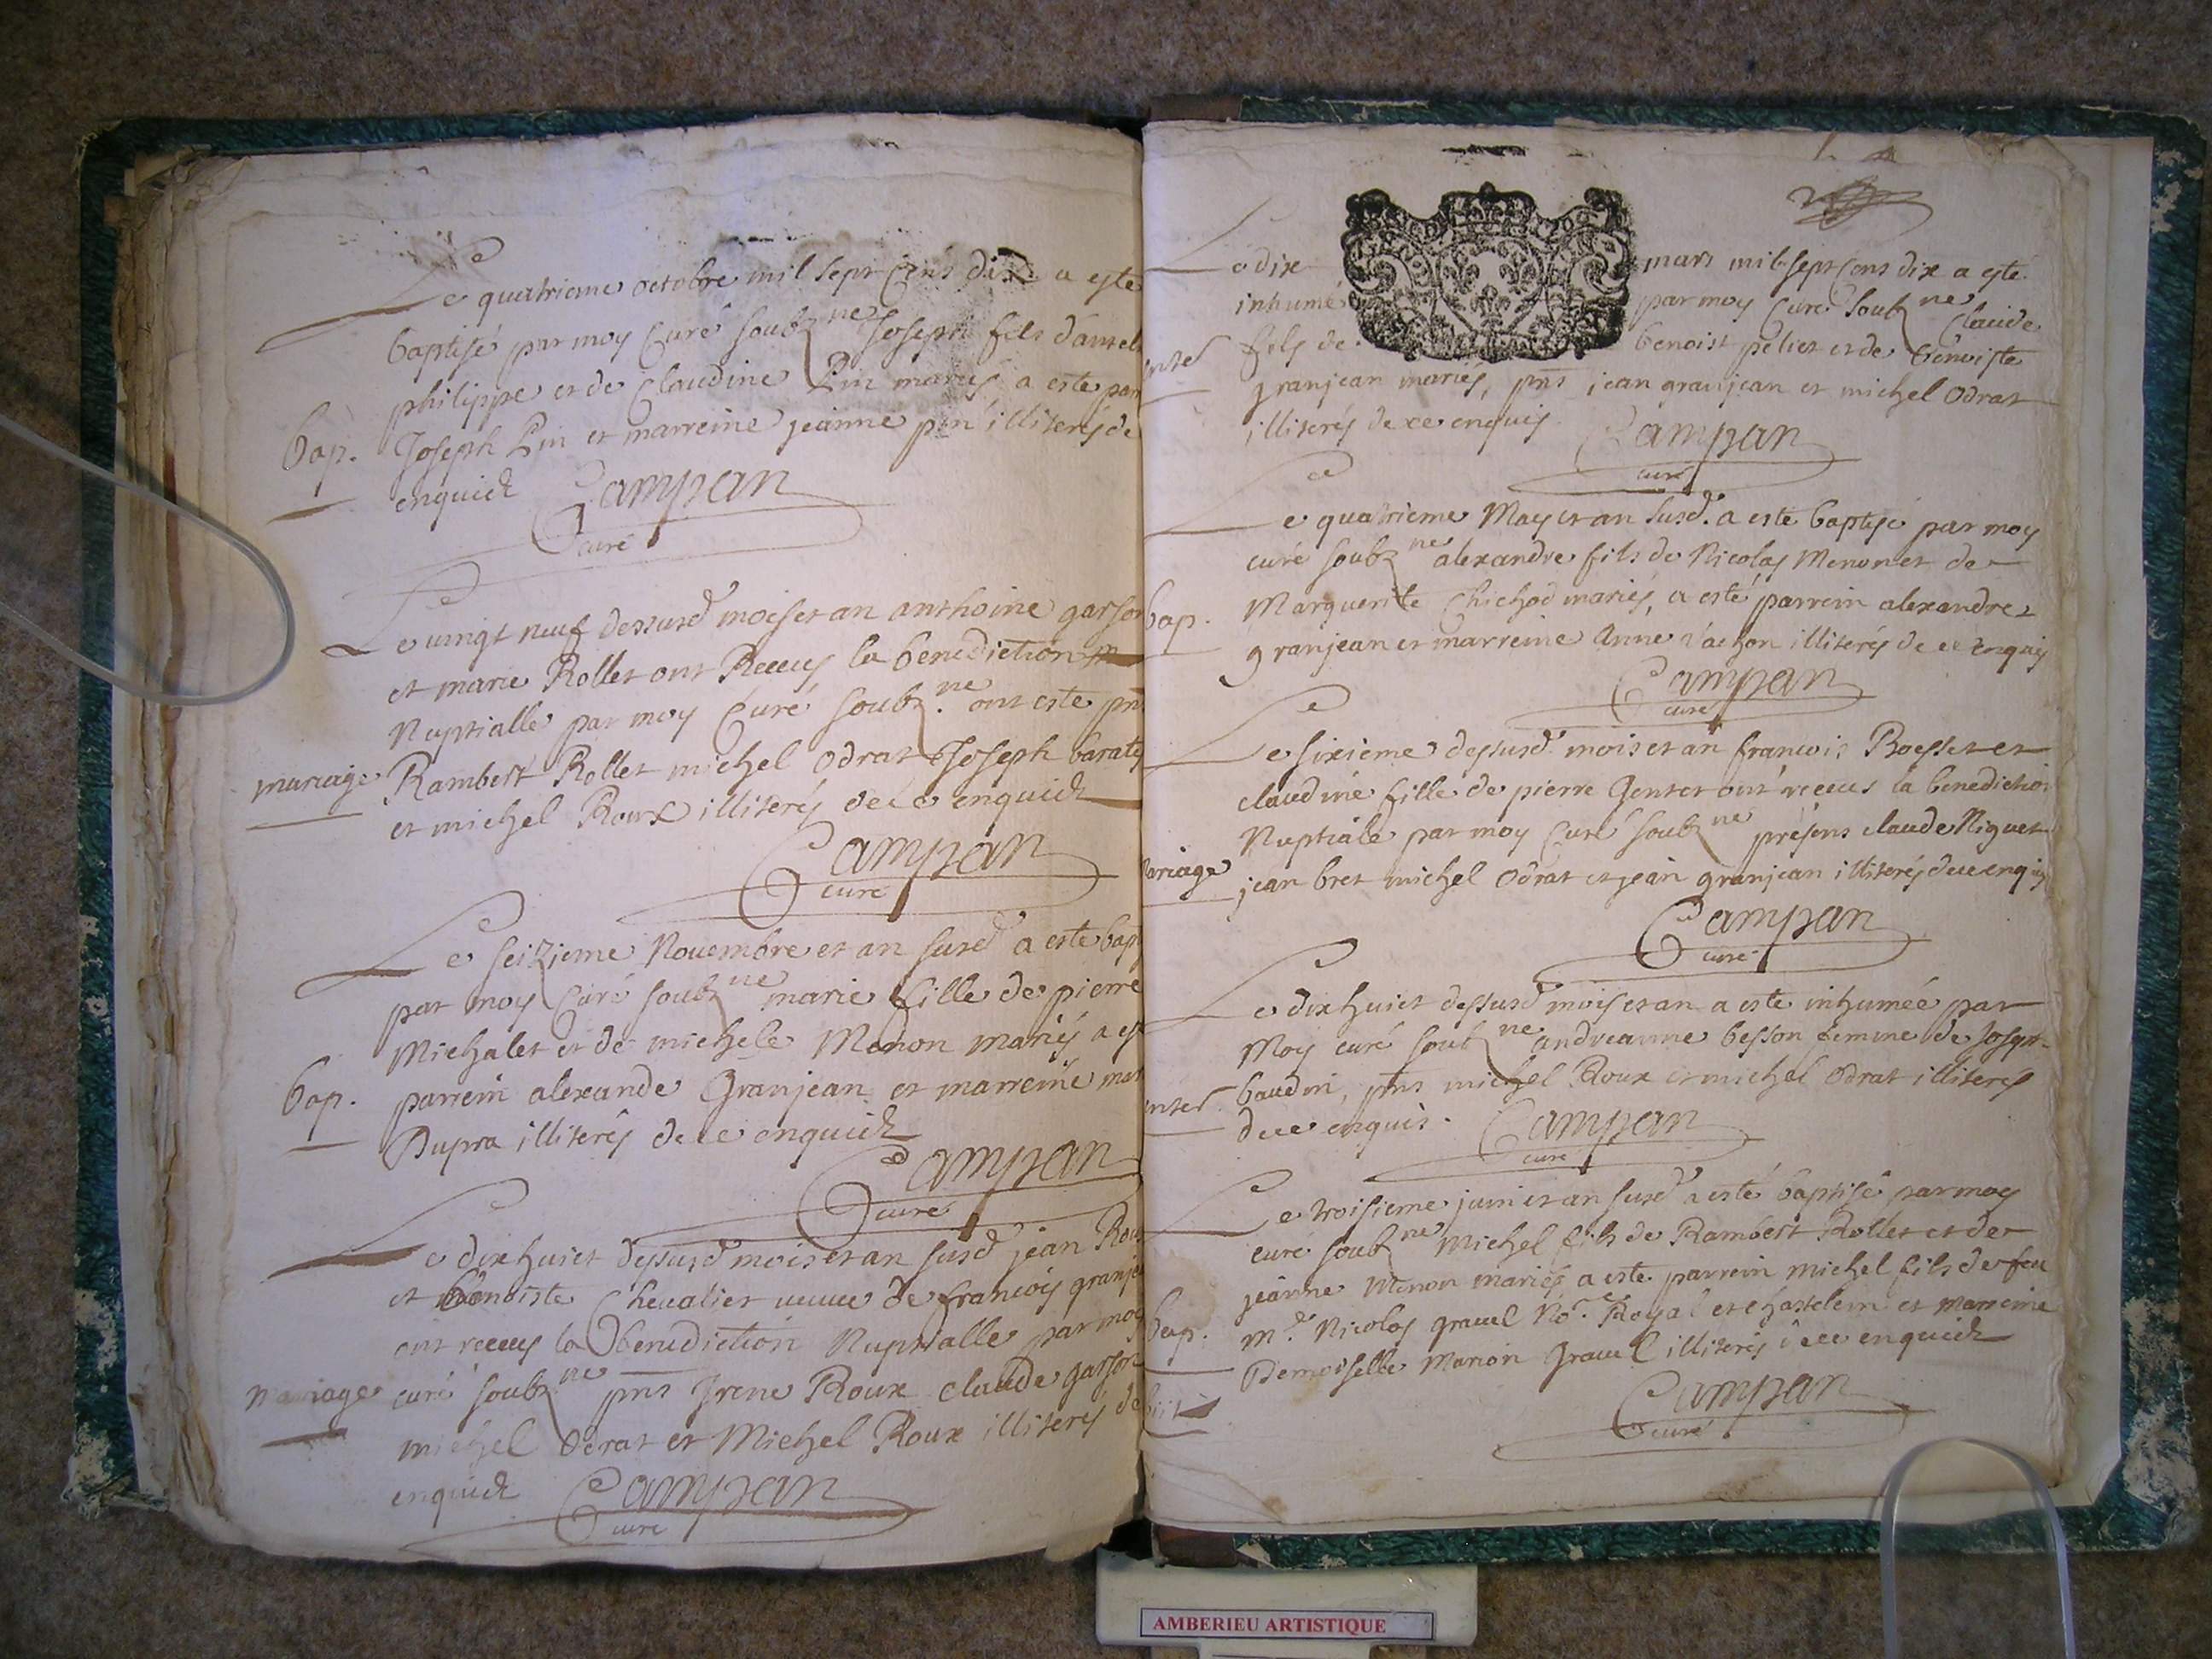 Le quatrieme octobre mil sept Cens dix a este
baptisé par moy Curé soubz ne Joseph fils d'antel
philippe et de Claudine Pin mariés a este par
Bap. Joseph Pin et marreine jeanne pin illiterés de
enquich Campan
curé
Le vingt neuf dessusd mois et an anthoine garson
et marie Rollet ont Receus la benediction
Nuptialle par moy Curé soubz ne ont este pns
mariage Rambert Rollet michel Odrat Joseph barat
et michel Roux illiterés de ce enquich
Campan
curé
Le seizieme Nouembre et an susd a este bap
par moy Curé soubz ne marie fille de pierre
Michalet et de michele Menon mariés a es
Bap. parrein alexande Granjean et marreine mar
Dupra illiterés de ce enquich
Campan
curé
Le dix huict dessusd mois et an susd jean Rou
et Benoiste Chevalier veuve de francois granje
ont receus la benediction Nuptialle par moy
Mariage curé soubz ne pns Irene Roux claude garson
michel Odrat et Michel Roux illiterés de
enquich Campan
curé
Le dix mars mil sept Cens dix a esté
inhumé par moy Curé soubz ne Claude
enter fils de benoist peliet et de benoiste
granjean mariés, pns jean granjean et michel Odrat
illiterés de ce enquis Campan
curé
Le quatrieme May et an susd. a este baptisé par moy
curé soubz ne alexandre fils de Nicolas Menon et de
bap. Marguerite Chichod mariés, a esté parrein alexandre
granjean et marreine Anne vachon illiterés de ce enquis
Campan
curé
Le sixieme dessusd mois et an francois Boesset et
claudine fille de pierre Gentet ont receus la benediction
Nuptiale par moy Curé soubz ne présens claude Niguet
mariage jean bret michel Odrat et jean granjean illiterés de ce enquis
Campan
curé
Le dix huict dessusd mois et an a este inhumée par
Moy curé soubz ne andreanne besson femme de Joseph
enter baudin, pns michel Roux et michel Odrat illiterés
de ce enquis. Campan
curé
Le troisieme juin et an susd a esté baptisé par moy
curé soubz ne Michel fils de Rambert Rollet et de
jeanne Menon mariés a este parrein michel fils de feu
bap. Mr. Nicolas gravel No.re Royal et chastelein et marreine
Demoiselle Marion Gravel illiterés de ce enquich
Campan
curé
AMBERIEU ARTISTIQUE